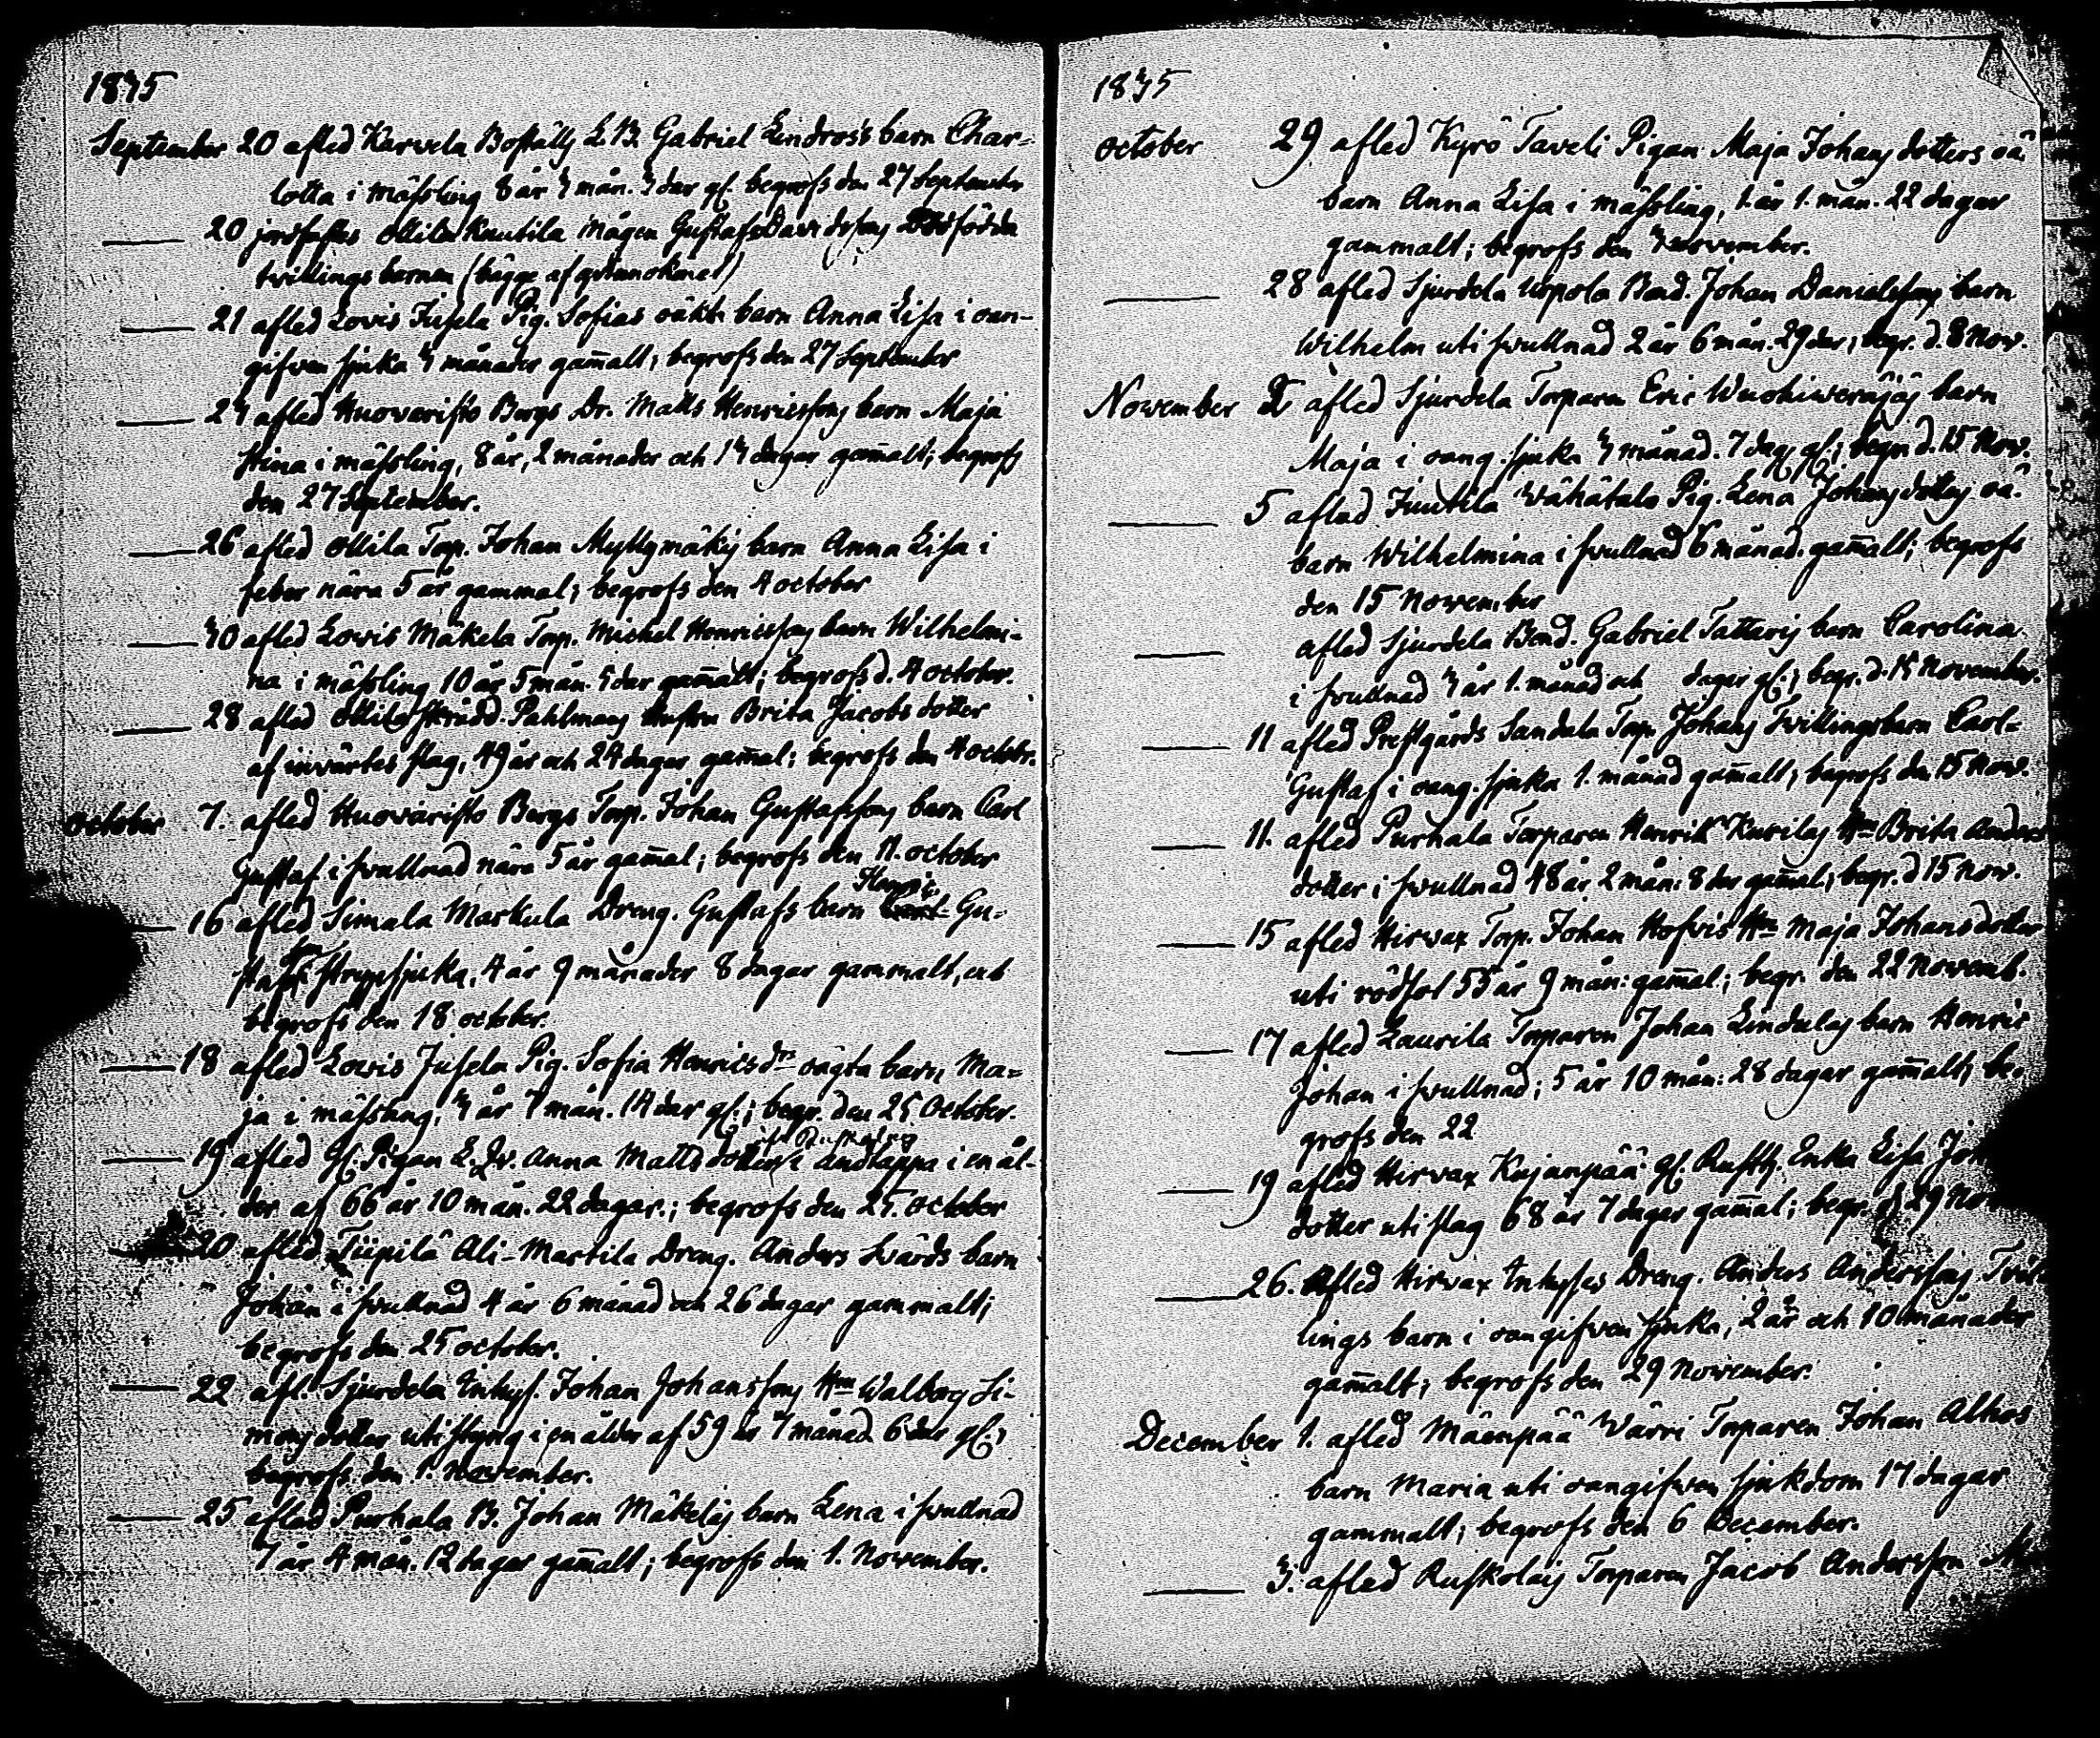 1835
September 20 afled Karvela Boställs L.B. Gabriel Lindros's barn Char=
lotta i mässling 8 år 3 mån. 3 dar gl. begrofs den 27 September
20 jordfästes Ollila Knutila mågen Gustaf Davidssons Dödfödda
tvillings barnen (bägge af qvinnokönet)
21 afled Lovis Jusela Pig. Sofias oäkt. barn Anna Lisa i oan-
gifven sjuka 3 månader gam̄alt; begrofs den 27 September
23 afled Huovaristo Bergs Dr. Matts Henricssons barn Maja
Stina i mässling, 8 år, 2 månader och 13 dagar gam̄alt; begrofs
den 27 September.
26 afled Ollila Torp. Johan Myllymäkis barn Anna Lisa i
feber nära 5 år gammal; begrofs den 4 october
30 afled Lovis Mäkelä Torp. Michel Henricssons barn Wilhelmi-
na i mässling 10 år 5 mån. 5 dar gam̄alt; begrofs d. 4 october.
28 afled Ollila skrädd. Pahlmans hustru Brita Jacobs dotter
af invärtes slag, 49 år och 24 dagar gam̄al; begrofs den 4 octobr.
October 7. afled Huovaristo Bergs Torp. Johan Gustafssons barn Carl
Gustaf i svullnad nära 5 år gam̄al; begrofs den 11. october
16 afled Simala Markula Dreng. Gustafs barn Henric Gu-
staf i strypsjuka, 4 år 9 månader 8 dagar gammalt, och
begrofs den 18 october.
18 afled Lovis Jusela Pig. Sofia Henricsdrs oägta barn Ma=
ja i mässling, 3 år 7 mån. 14 dar gl.; begr. den 25 October.
19 afled gl. Pigan L. Qv. Anna Matts dotter i andtäppa i en ål-
der af 66 år 10 mån. 22 dagar.; begrofs den 25. October
20 afled Tiipilä Ali-Martila Dreng. Anders Svärds barn
Johan i svullnad 4 år 6 månad och 26 dagar gammalt;
begrofs den 25 october.
22 afl. Sjurdela Inhys. Johan Johanssons Hm Walborg Si-
mons dotter uti styng i en ålder af 59 år 7 månad 6 dar gl.;
begrofs den 1. November.
25 afled Purhala B. Johan Mäkeläs barn Lena i svullnad
7 år 4 mån. 12 dagar gam̄alt; begrofs den 1. November.
1835
October 29 afled Kyrö Taveli Pigan Maja Johans dotters oä.
barn Anna Lisa i mässling, 1. år 1. mån. 22 dagar
gammalt; begrofs den 3 November.
28 afled Sjurdela Uspola Bond. Johan Danielssons barn
Wilhelm uti svullnad 2 år 6 mån. 29 dar; begr. d. 8 Nov.
November 2 afled Sjurdela Torparen Eric Wuohiverajäs barn
Maja i oang. sjuka 3 månad. 7 dag. gl.; begr. d. 15 Nov.
5 afled Juutila Wähätalo Pig. Lena Johans dotters oä.
barn Wilhelmina i svullnad 6 månad. gam̄alt; begrofs
den 15 November
afled Sjurdela Bond. Gabriel Tattaris barn Carolina
i svullnad 3 år 1. månad och dagar gl.; begr. d. 15 November.
11 afled Prestgårds Sandala Torp. Johans Tvillingsbarn Carl-
Gustaf i oang. sjuka 1. månad gam̄alt; begrofs den 15 Nov.
11. afled Purhala Torparen Henrik Kurilas Hm Brita Anders
dotter i svullnad 48 år 2 mån: 8 dar gam̄al; begr. d 15 Nov.
15 afled Hirvax Torp. Johan Hofvis Hm Maja Johans dotter
uti rödsot 55 år 9 mån: gam̄al; begr. den 22 Novemb.
17 afled Laurila Torparen Johan Lindulas barn Henric
Johan i svullnad; 5 år 10 mån: 28 dagar gam̄alt; be-
grofs den 22
19 afled Hirvax Kajanpää gl. Rusth. Enka Lisa Joh
dotter uti slag 68 år 7 dagar gam̄al; begr. d 29 No
26. Afled Hirvax Inhyses Dreng. Anders Anderssons Tvil-
lings barn i oangifven sjuka, 2 år och 10 månader
gam̄alt; begrofs den 29 November.
December 1. afled Mäenpää Wärri Torparen Johan Alhos
barn Maria uti oangifven sjukdom 17 dagar
gammalt; begrofs den 6 December.
3. afled Ruskolais Torparen Jacob Andersson